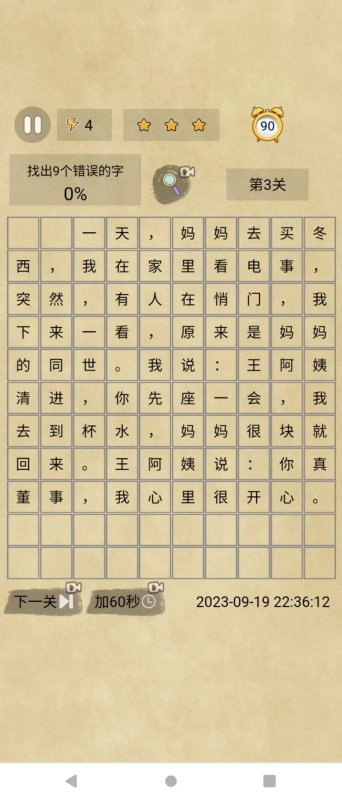 4
90
找出9个错误的字
0%
第3关
一天，妈妈去买冬
西，我在家里看电事，
突然，有人在悄门，我
下来一看，原来是妈妈
的同世。我说：王阿姨
清进，你先座一会，我
去到杯水，妈妈很块就
回来。王阿姨说：你真
董事，我心里很开心。
下一关 加60秒 2023-09-19 22:36:12